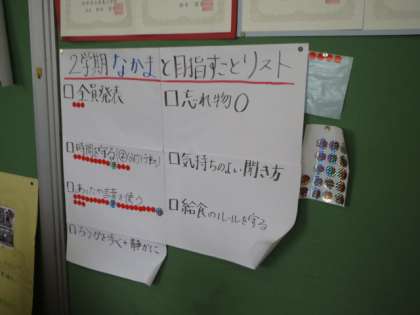 2学期 なかまと目指すことリスト
□全員発表
□忘れ物0
□時間を守る
□気持ちのよい聞き方
□あったか言葉を使う
□給食のルールを守る
静かに